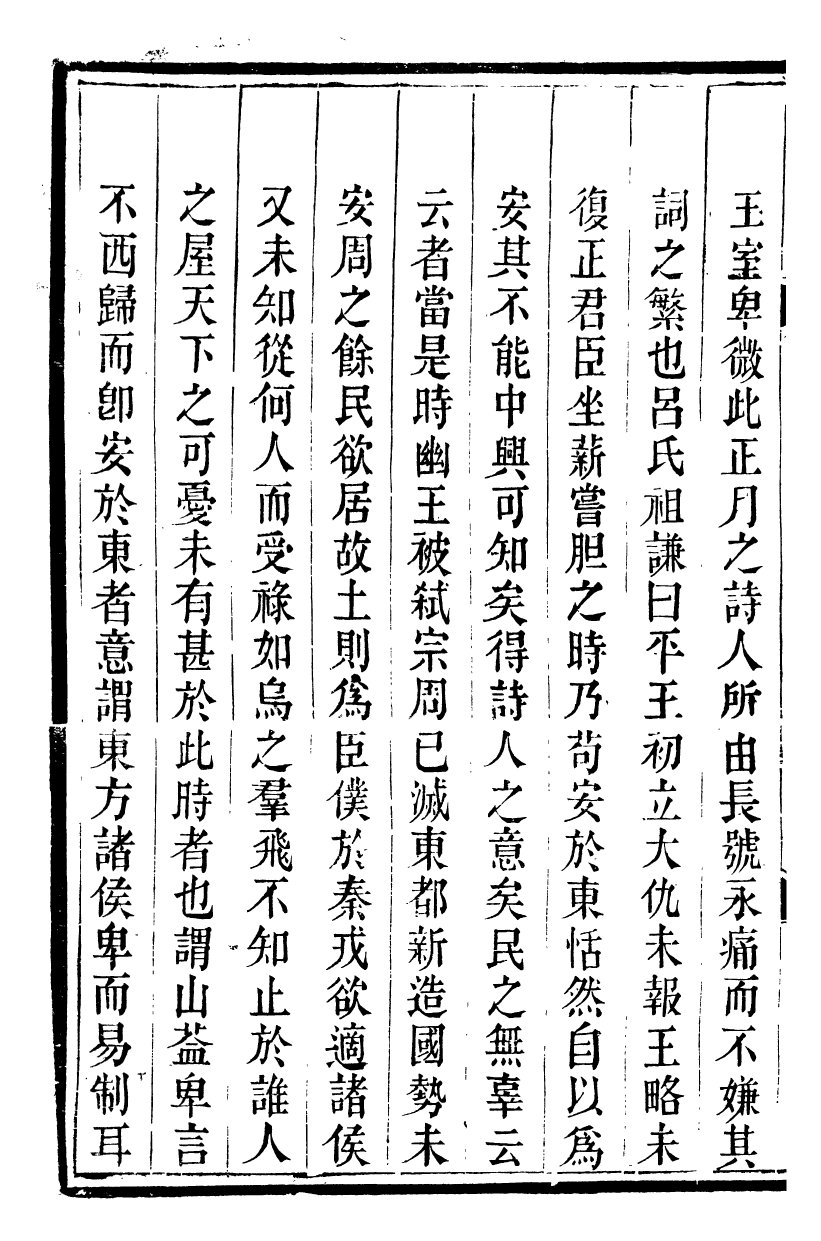 王室卑微此正月之詩人所由長號永痛而不嫌其
詞之繁也呂氏祖謙曰平王初立大仇未報王略未
復正君臣坐薪嘗胆之時乃苟安於東恬然自以爲
安其不能中興可知矣得詩人之意矣民之無辜云
云者當是時幽王被弑宗周已滅東都新造國勢未
安周之餘民欲居故土則爲臣僕於秦戎欲適諸侯
又未知從何人而受祿如烏之羣飛不知止於誰人
之屋天下之可憂未有甚於此時者也謂山葢卑言
不西歸而卽安於東者意謂東方諸侯卑而易制耳